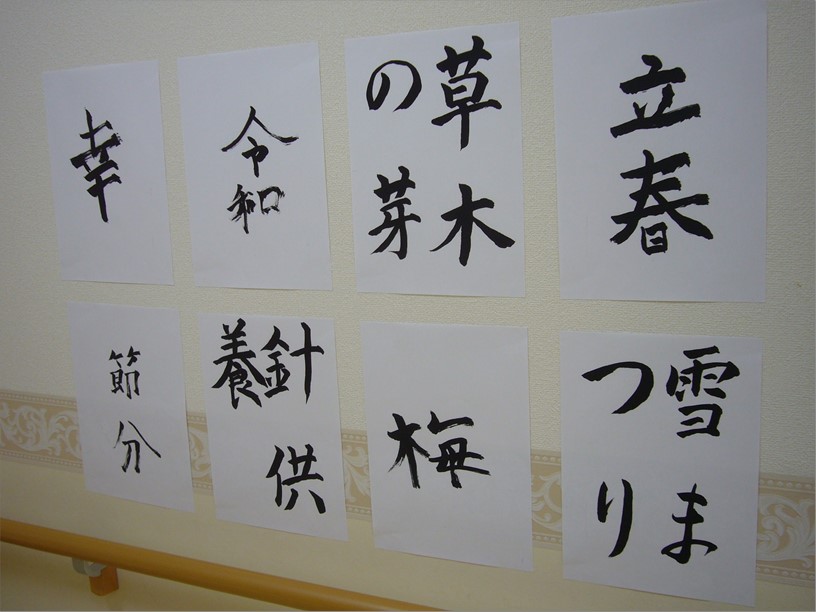 立春
草木
の芽
令和
幸
雪ま
つり
梅
針供
養
節分